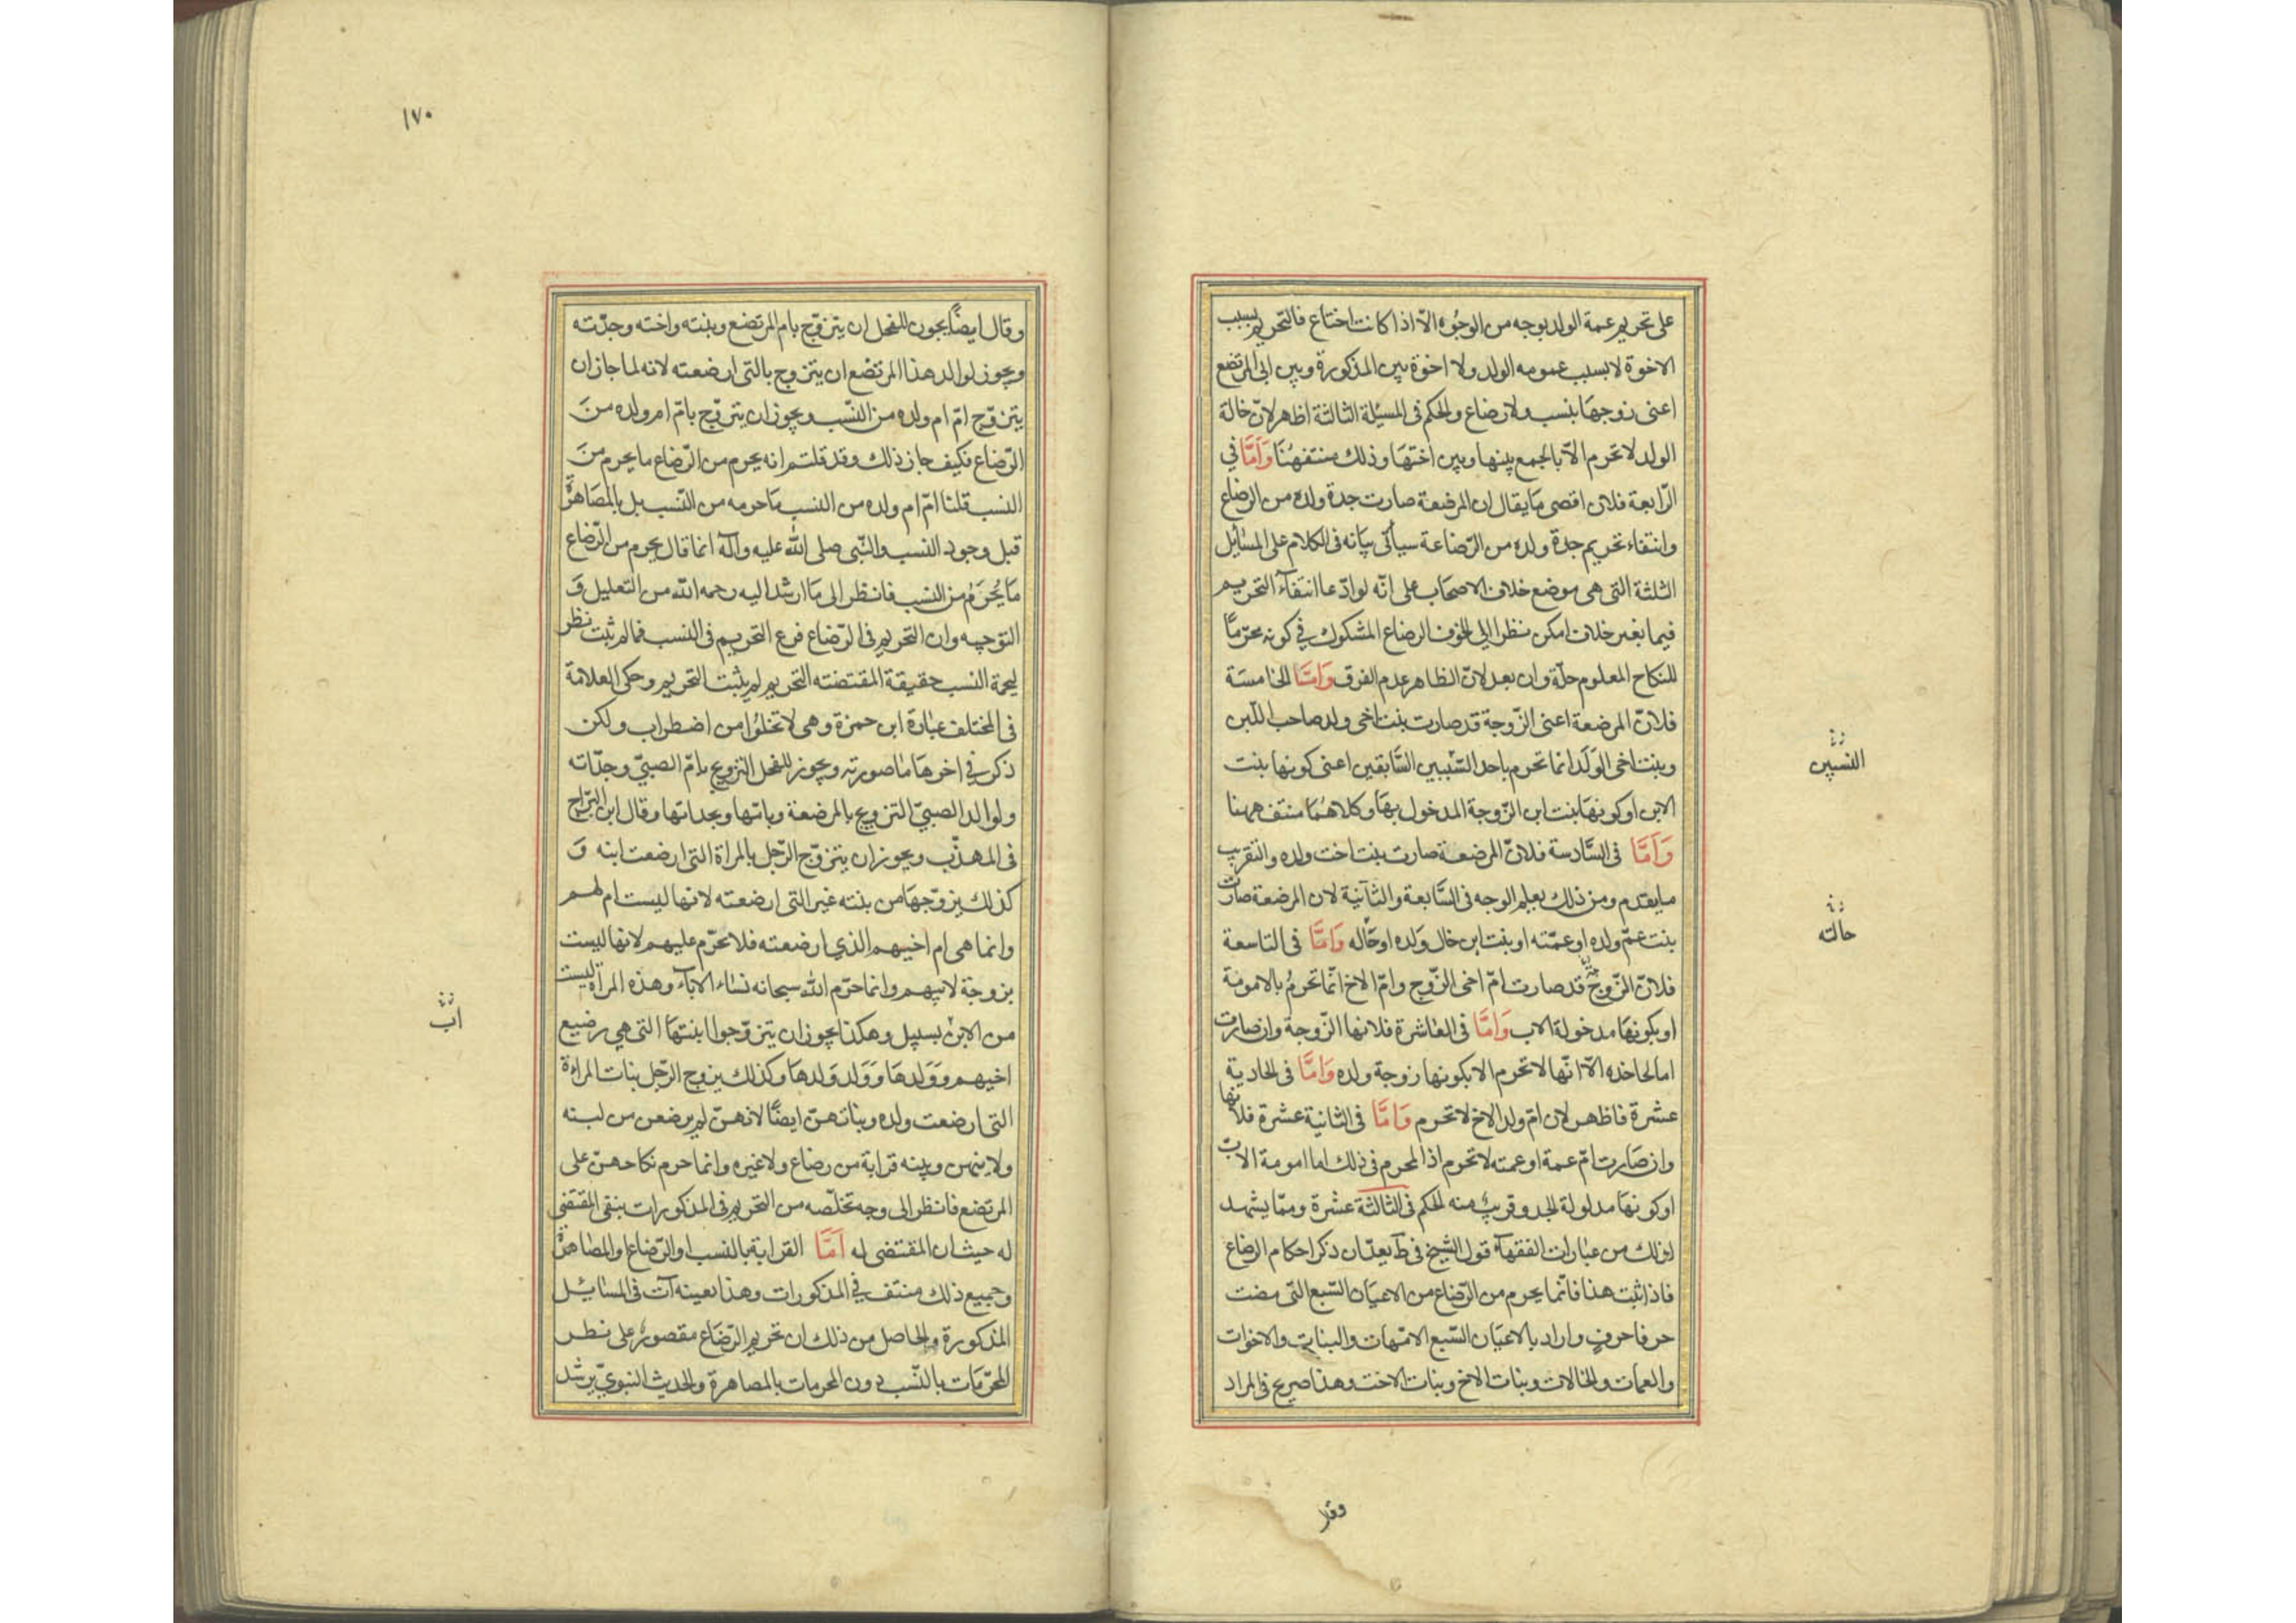 على تحريم عمة الولد بوجه من الوجوه الا اذا كانت اختاع فالتحريم بسبب
الاخوة لا بسبب عمومه الولد ولا اخوة بين المذكورة وبين ابى المرتضع
اعنى زوجها بنسب ولا رضاع والحكم فى المسئلة الثالثة اظهر لان خالة
الولد لا تحرم الا بالجمع بينها وبين اختها وذلك منتف هنا وَاَمَّا في
الرابعة فلان اقصى ما يقال ان المرضعة صارت جدة ولده من الرضاع
وانتفاء تحريم جدة ولده من الرضاعة سيأتى بيانه فى الكلام على المسائل
الثلثة التى هى موضع خلاف الاصحاب على انه لو ادعا انتفاء التحريم
فيما بغير خلاف امكن نظرا الى الرضاع المشكوك في كونه محرّماً
للنكاح المعلوم حلّه وان بعد لانّ الظاهر عدم الفرق وَاَمَّا الخامسة
فلانّ المرضعة اعنى الزّوجة قد صارت بنت اخى ولد صاحب اللّبن
وبنت اخى الولد انما تحرم باحد السّببين السّابقين اعنى كونها بنت
الابن او كونها بنت ابن الزّوجة المدخول بها وكلاهما منتف ههنا
وَاَمَّا فى السّادسة فلانّ المرضعة صارت بنت اخت ولده والتقريب
ما يقدم ومن ذلك يعلم الوجه فى السّابعة والثّانية لان المرضعة صارت
بنت عمّ ولده او عمّته او بنت ابن خال ولده او خاله وَاَمَّا فى التاسعة
فلانّ الزّوجة قد صارت امّ اخى الزّوج وامّ الاخ انّما تحرم بالامومة
او بكونها مدخولة الاب وَاَمَّا فى العاشرة فلانها الزّوجة وان صارت
اما لحاخده الّا انّها لا تحرم الا بكونها زوجة ولده وَاَمَّا فى الحادية
عشرة فاظهر لان امّ ولد الاخ لا تحرم وَاَمَّا فى الثانية عشرة فلانها
وان صارت امّ عمة او عمته لا تحرم اذ المحرم فى ذلك اما امومة الاب
او كونها مدلولة الجد وقريب منه الحكم فى الثالثة عشرة وممّا يشهد
لذلك من عبارات الفقهآء قول الشيخ فى ط بعد ان ذكر احكام الرضاع
فاذا ثبت هذا فانّما يحرم من الرّضاع من الاعيان السّبع التّى مضت
حرفا حرف واراد بالاعيان السّبع الامّهات والبنات والاخوات
والعمات والخالات وبنات الاخ وبنات الاخت وهذا صريح فى المراد
النسبين
خالته
وقد
١٧٠
وقال ايضاً يجوز للفحل ان يتزوّج بام المرتضع وبنته واخته وجدّته
ويجوز لوالد هذا المرتضع ان يتزوج بالتى ارضعته لانه لما جاز ان
يتزوّج امّ ام ولده من النّسب ويجوز ان يتزوّج بامّ ام ولده منَ
الرّضاع فكيف جاز ذلك وقد قلتم انه يحرم من الرّضاع ما يحرم منَ
النسب قلنا امّ ام ولده من النسب ما حرمه من النّسب بل بالمصاهرة
قبل وجود النسب والنّبى صلى الله عليه وآله انما قال يحرم من الرّضاع
ما يُحرَمُ من النسب فانظر الى ما ارشد اليه رحمه الله من التعليل وَ
التوجيه وان التحريم فى الرّضاع فرع التحريم فى النسب فما لم ثبت نظر
لحمة النسب حقيقة المقتضته التحريم لم يثبت التحريم وحكى العلامة
فى المختلف عبارة ابن حمزة وهى لا تخلوا من اضطراب ولكن
ذكر في اخرها ما صورته ويجوز للفحل التزويج بامّ الصبىّ وجدّاته
ولوالد الصبىّ التزويج بالمرضعة وبامّها وبجداتها وقال ابن البرّاج
فى المهذّب ويجوز ان يتزوّج الرّجل بالمراة التى ارضعت ابنه وَ
كذلك يزوّجها من بنته غير التى ارضعته لانها ليست ام لهم
وانما هى ام اخيهم الذي ارضعته فلا تحرّم عليهم لانها ليست
بزوجة لابيهم وانما حرّم الله سبحانه نساء الاباء وهذه المراة ليست
من الابن بسبيل وهكذا يجوز ان يتزوّجوا ابنتها التى هى رضيع
اخيهم وولدها وولد ولدها وكذلك يزوج الرّجل بنات المراءة
التى ارضعت ولده وبناتهنّ ايضاً لانهنّ لم يرضعن من لبنه
ولا بينهن وبينه قرابة من رضاع ولا غيره وانما حرم نكاحهنّ على
المرتضع فانظر الى وجه تخلّصه من التحريم فى المذكورات بنفى المقتضى
له حيث ان المقتضى له اَمَّا القرابة بالنسب او الرّضاع او المصاهرة
وجميع ذلك منتف في المذكورات وهذا بعينه آت فى المسائيل
المذكورة والحاصل من ذلك ان تحريم الرّضاع مقصور على نظر
المحرّمات بالنّسب دون المحرمات بالمصاهرة والحديث النبويّ يرشد
اب